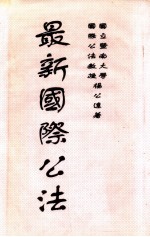 國立暨南大學楊公達著
國際公法教授
最新國際公法